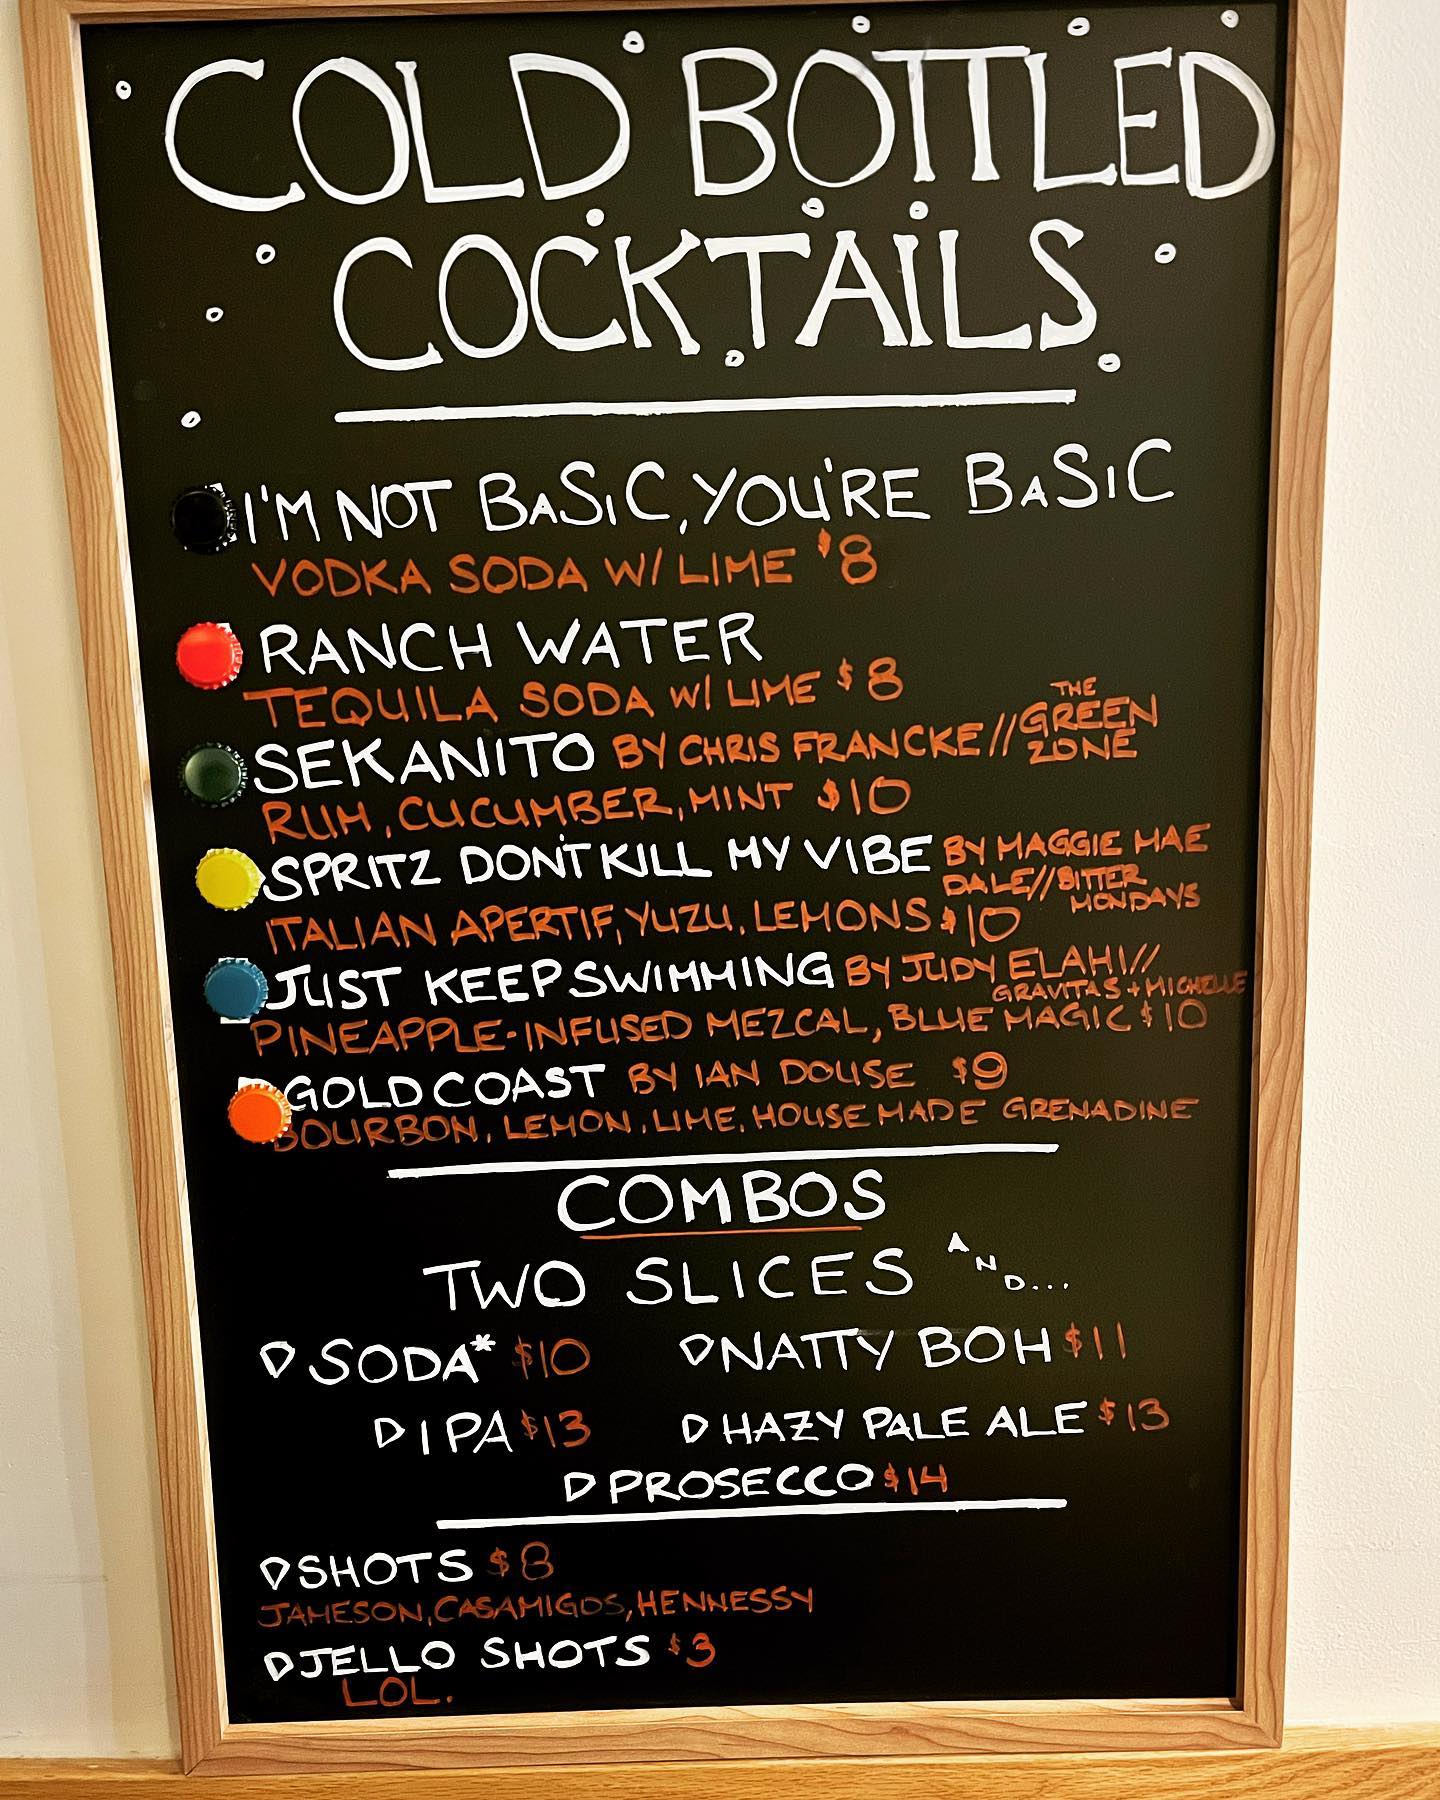 COLD BOTTLED
COCKTAILS
I'M NOT BASIC, YOU'RE BASIC
VODKA SODA W/ LIME $8
RANCH WATER
TEQUILA SODA W/ LIME $8
SEKANITO BY CHRIS FRANCKE // THE GREEN ZONE
RUM, CUCUMBER, MINT $10
SPRITZ DON'T KILL MY VIBE BY MAGGIE MAE
DALE // BITTER MONDAYS
ITALIAN APERTIF, YUZU, LEMONS $10
JUST KEEP SWIMMING BY JUDY ELAHI //
GRAVITAS + MICHELLE
PINEAPPLE-INFUSED MEZCAL, BLUE MAGIC $10
GOLD COAST BY IAN DOUSE $9
BOURBON, LEMON, LIME, HOUSEMADE GRENADINE
COMBOS
TWO SLICES AND...
SODA* $10 NATTY BOH $11
IPA $13 HAZY PALE ALE $13
PROSECCO $14
SHOTS $8
JAMESON, CASAMIGOS, HENNESSY
JELLO SHOTS $3
LOL.